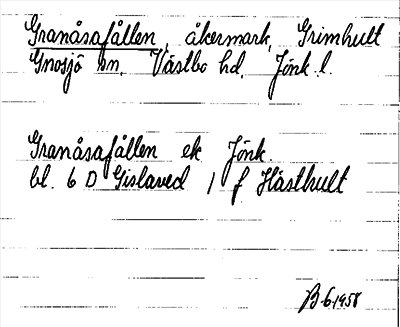 Granåsafållen, åkermark, Grimhult
Gnosjö sn, Västbo hd, Jönk. l.
Granåsafållen ek Jönk.
bl. 6 D Gislaved 1 f Hästhult
B 6 1958